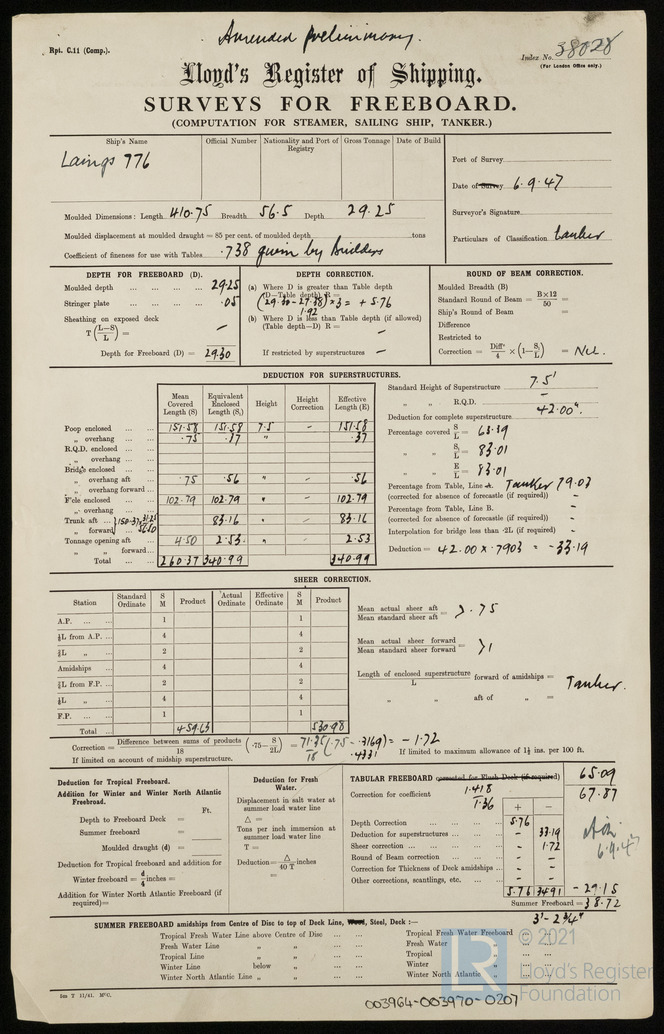 Amended preliminary.
Rpt. C.11 (Comp.).
Index No. 38028
(For London Office only.)
Lloyd's Register of Shipping.
SURVEYS FOR FREEBOARD.
(COMPUTATION FOR STEAMER, SAILING SHIP, TANKER.)
Ship's Name Official Number Nationality and Port of Registry Gross Tonnage Date of Build
Laings 776
Port of Survey
Date of Survey 6.9.47
Surveyor's Signature
Particulars of Classification Tanker
Moulded Dimensions: Length 410.75 Breadth 56.5 Depth 29.25
Moulded displacement at moulded draught = 85 per cent. of moulded depth tons
Coefficient of fineness for use with Tables .738 given by Builders
DEPTH FOR FREEBOARD (D).
Moulded depth ... ... ... ... 29.25
Stringer plate ... ... ... ... .05
Sheathing on exposed deck
T (L-S/L) = -
Depth for Freeboard (D) = 29.30
DEPTH CORRECTION.
(a) Where D is greater than Table depth
(D-Table depth) R =
(29.30 - 27.38) × 3 = + 5.76
1.92
(b) Where D is less than Table depth (if allowed)
(Table depth-D) R = -
If restricted by superstructures -
ROUND OF BEAM CORRECTION.
Moulded Breadth (B)
Standard Round of Beam = B×12/50 =
Ship's Round of Beam =
Difference
Restricted to
Correction = Diff/4 × (1-S₁/L) = Nil.
DEDUCTION FOR SUPERSTRUCTURES.
Mean Covered Length (S) Equivalent Enclosed Length (S₁) Height Height Correction Effective Length (E)
Poop enclosed ... ... 151.58 151.58 7.5 - 151.58
„ overhang ... ... .75 .37 „ .37
R.Q.D. enclosed ... ...
„ overhang ... ...
Bridge enclosed ... ...
„ overhang aft ... .75 .56 „ .56
„ overhang forward ...
F'cle enclosed ... ... 102.79 102.79 „ - 102.79
„ overhang ... ...
Trunk aft ... } 150.37 83.16 „ - 83.16
„ forward
Tonnage opening aft ... 4.50 2.53 „ - 2.53
„ „ forward...
Total ... ... 260.37 340.99 340.99
Standard Height of Superstructure 7.5'
„ „ R.Q.D. -
Deduction for complete superstructure 42.00".
Percentage covered S/L = 63.39
„ „ S₁/L = 83.01
„ „ E/L = 83.01
Percentage from Table, Line A. Tanker 79.03
(corrected for absence of forecastle (if required))
Percentage from Table, Line B. -
(corrected for absence of forecastle (if required))
Interpolation for bridge less than ·2L (if required) -
Deduction = 42.00 × .7903 = -33.19
SHEER CORRECTION.
Station Standard Ordinate S M Product Actual Ordinate Effective Ordinate S M Product
A.P. ... ... 1 1
⅙L from A.P. ... 4 4
⅓L „ ... 2 2
Amidships ... 4 4
⅓L from F.P. ... 2 2
⅙L „ ... 4 4
F.P. ... ... 1 1
Total ... 459.63 530.98
Mean actual sheer aft
Mean standard sheer aft = > .75
Mean actual sheer forward
Mean standard sheer forward = > 1
Length of enclosed superstructure/L forward of amidships = Tanker.
„ „ aft of „ =
Correction = Difference between sums of products/18 (·75 - S/2L) = 71.35/18 (.75 - .3169) = - 1.72
.4331
If limited on account of midship superstructure.
If limited to maximum allowance of 1½ ins. per 100 ft.
Deduction for Tropical Freeboard.
Addition for Winter and Winter North Atlantic Freeboard.
Ft.
Depth to Freeboard Deck =
Summer freeboard =
Moulded draught (d) =
Deduction for Tropical freeboard and addition for
Winter freeboard = d/4 inches =
Addition for Winter North Atlantic Freeboard (if required)=
Deduction for Fresh Water.
Displacement in salt water at summer load water line
△ =
Tons per inch immersion at summer load water line
T =
Deduction = △/40 T inches
=
TABULAR FREEBOARD corrected for Flush Deck (if required) 65.09
Correction for coefficient 1.418/1.36 67.87
+ -
Depth Correction ... ... ... 5.76 -
Deduction for superstructures ... ... - 33.19
Sheer correction ... ... ... - 1.72
Round of Beam correction ... ... - -
Correction for Thickness of Deck amidships ... - -
Other corrections, scantlings, etc. ... ... - -
5.76 34.91 - 29.15
Summer Freeboard = 38.72
6.9.47
3'-2¾"
SUMMER FREEBOARD amidships from Centre of Disc to top of Deck Line, Wood, Steel, Deck :—
Tropical Fresh Water Line above Centre of Disc ... ... Tropical Fresh Water Freeboard
Fresh Water Line „ „ ... ... Fresh Water „
Tropical Line „ „ ... ... Tropical „
Winter Line below „ ... ... Winter „
Winter North Atlantic Line „ „ ... ... Winter North Atlantic „
© 2021
LR
Lloyd's Register
Foundation
003964-003970-0207